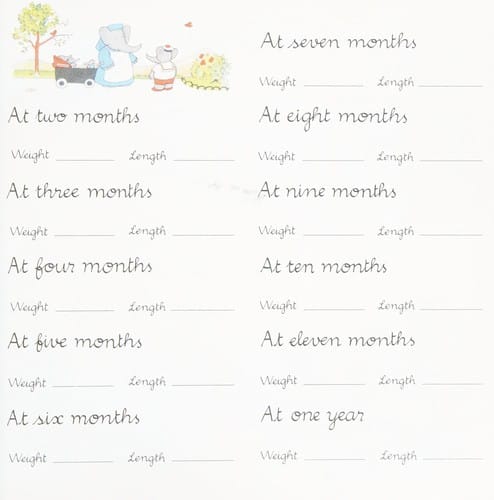 At two months
Weight Length
At three months
Weight Length
At four months
Weight Length
At five months
Weight Length
At six months
Weight Length
At seven months
Weight Length
At eight months
Weight Length
At nine months
Weight Length
At ten months
Weight Length
At eleven months
Weight Length
At one year
Weight Length